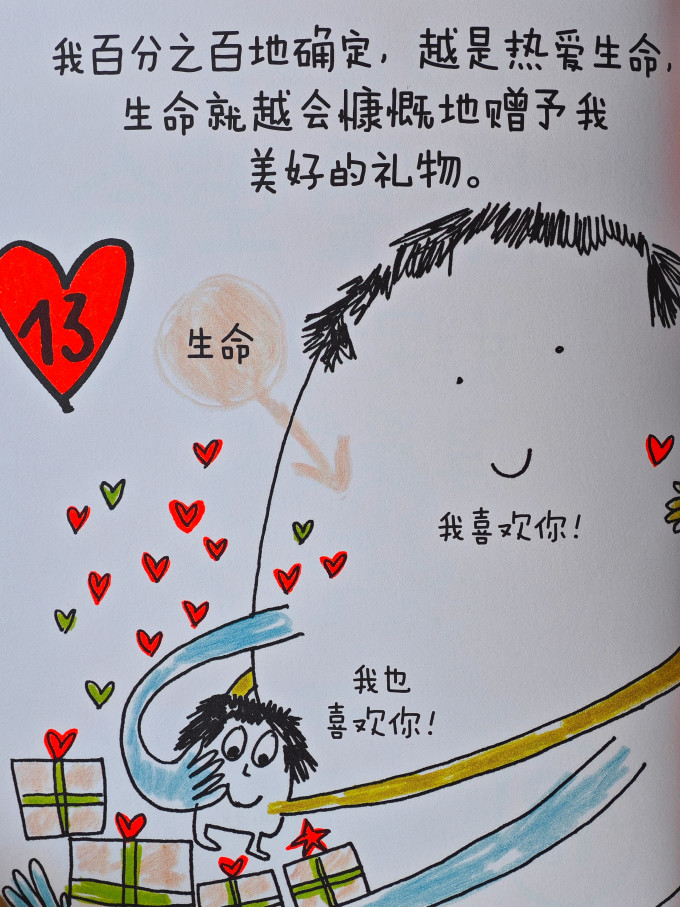 我百分之百地确定，越是热爱生命，
生命就越会慷慨地赠予我
美好的礼物。
13
生命
我喜欢你！
我也
喜欢你！